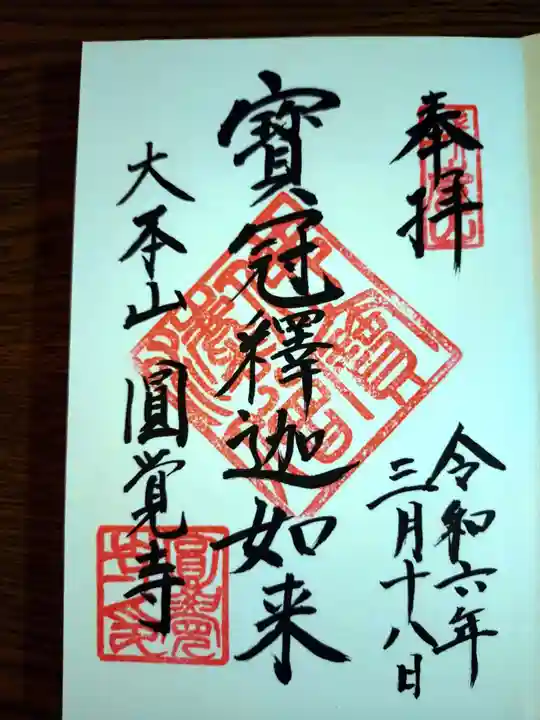 奉拝
令和六年
三月十八日
寶冠釋迦如来
大本山 圓覚寺